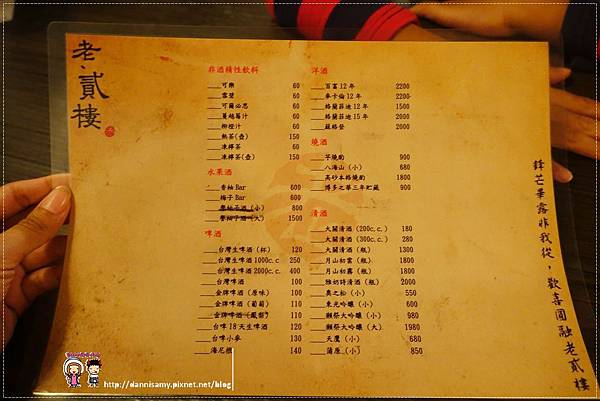 老·貳樓
非酒精性飲料
可樂 60
雪碧 60
可爾必思 60
蔓越莓汁 60
柳橙汁 60
熱茶(壺) 150
凍檸茶 60
凍檸茶(壺) 150
水果酒
香柚Bar 600
梅子Bar 600
800
1500
啤酒
台灣生啤酒 (杯) 120
台灣生啤酒 1000c.c 250
台灣生啤酒 2000c.c. 400
台灣啤酒 100
金牌啤酒 (原味) 100
金牌啤酒 (葡萄) 110
金牌啤酒 (鳳梨) 110
台啤18天生啤酒 120
台啤小麥 130
海尼根 140
洋酒
百富12年 2200
麥卡倫12年 2200
格蘭菲迪12年 1500
格蘭菲迪15年 2000
蘇格登 2000
燒酒
芋燒酎 900
八海山 (小) 680
高砂本格燒酎 1800
博多之華三年貯藏 900
清酒
大關清酒 (200c.c.) 180
大關清酒 (300c.c.) 280
大關清酒 (瓶) 1300
月山初霧 (瓶) 1800
月山初霧 (瓶) 1800
雅妙詩清酒 (瓶) 1800
奧之松 (小) 550
東光吟釀 (小) 600
獺祭大吟釀 (小) 980
獺祭大吟釀 (大) 1980
天鷹 (小) 680
蒲原 (小) 850
鋒芒畢露非我從,歡喜圓融老貳樓
http://dannisamy.pixnet.net/blog